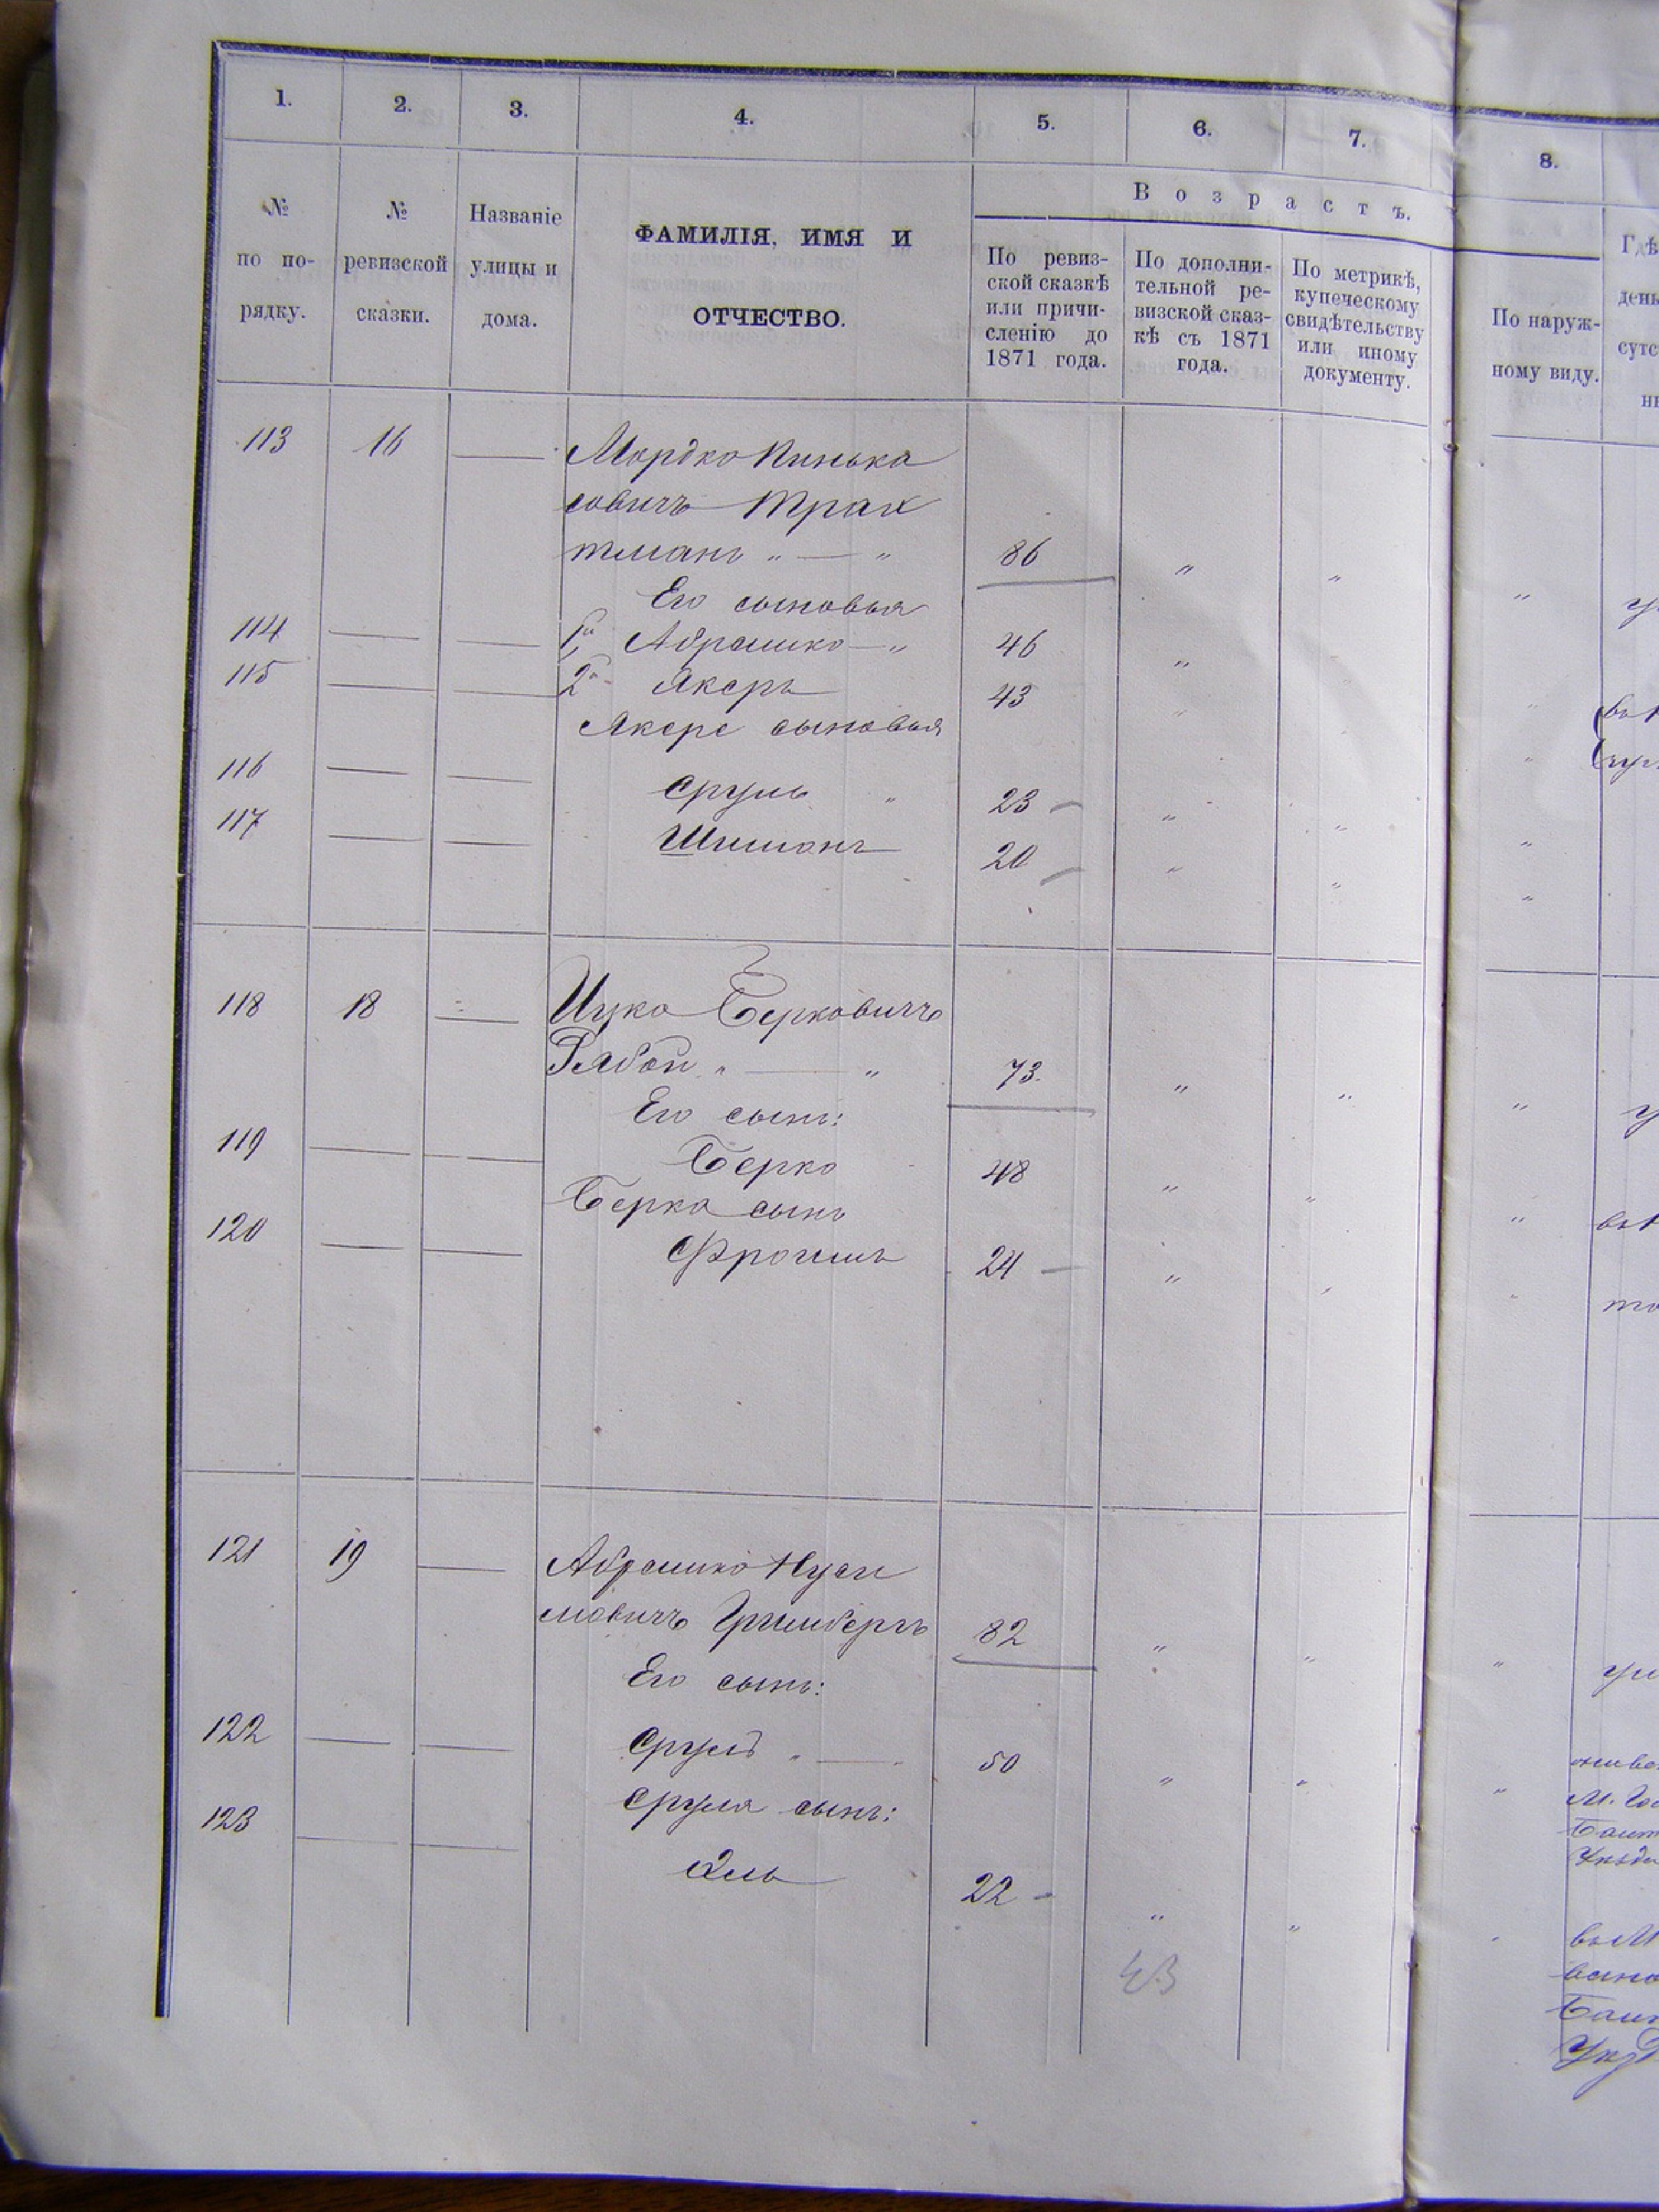 1. 2. 3. 4. 5. 6. 7. 8.
№ по по-рядку.
№ ревизской сказки.
Названіе улицы и дома.
ФАМИЛІЯ, ИМЯ И
ОТЧЕСТВО.
Возрастъ.
По ревиз-
ской сказкѣ
или причи-
сленію до
1871 года.
По дополни-
тельной ре-
визской сказ-
кѣ съ 1871
года.
По метрикѣ,
купеческому
свидѣтельству
или иному
документу.
По наруж-
ному виду.
Гдѣ
113 16 — Мордко Пинька
совичъ Трах
тманъ „ — „ 86 „ „ „
Его сыновья
114 — — 1й Абрамко — „ 46 „
115 — — 2й Якеръ 43 „ „
Якере сыновья
116 — — Сруль „ 23 — „ „ „
117 — — Шимонъ 20 — „ „ „
118 18 — Ицко Берковичъ
Рябой „ — „ 73. „ „ „
Его сынъ:
119 — — Берко 48 „ „ „
Берка сынъ
120 — — Фроимъ 24 — „ „
121 19 — Абрамко Нухи
мовичъ Гримбергъ 82 „ „ „
Его сынъ:
122 — — Сруль „ — „ 50 „ „ „
Сруля сынъ:
123 — — Эль 22 — „ „ „
43